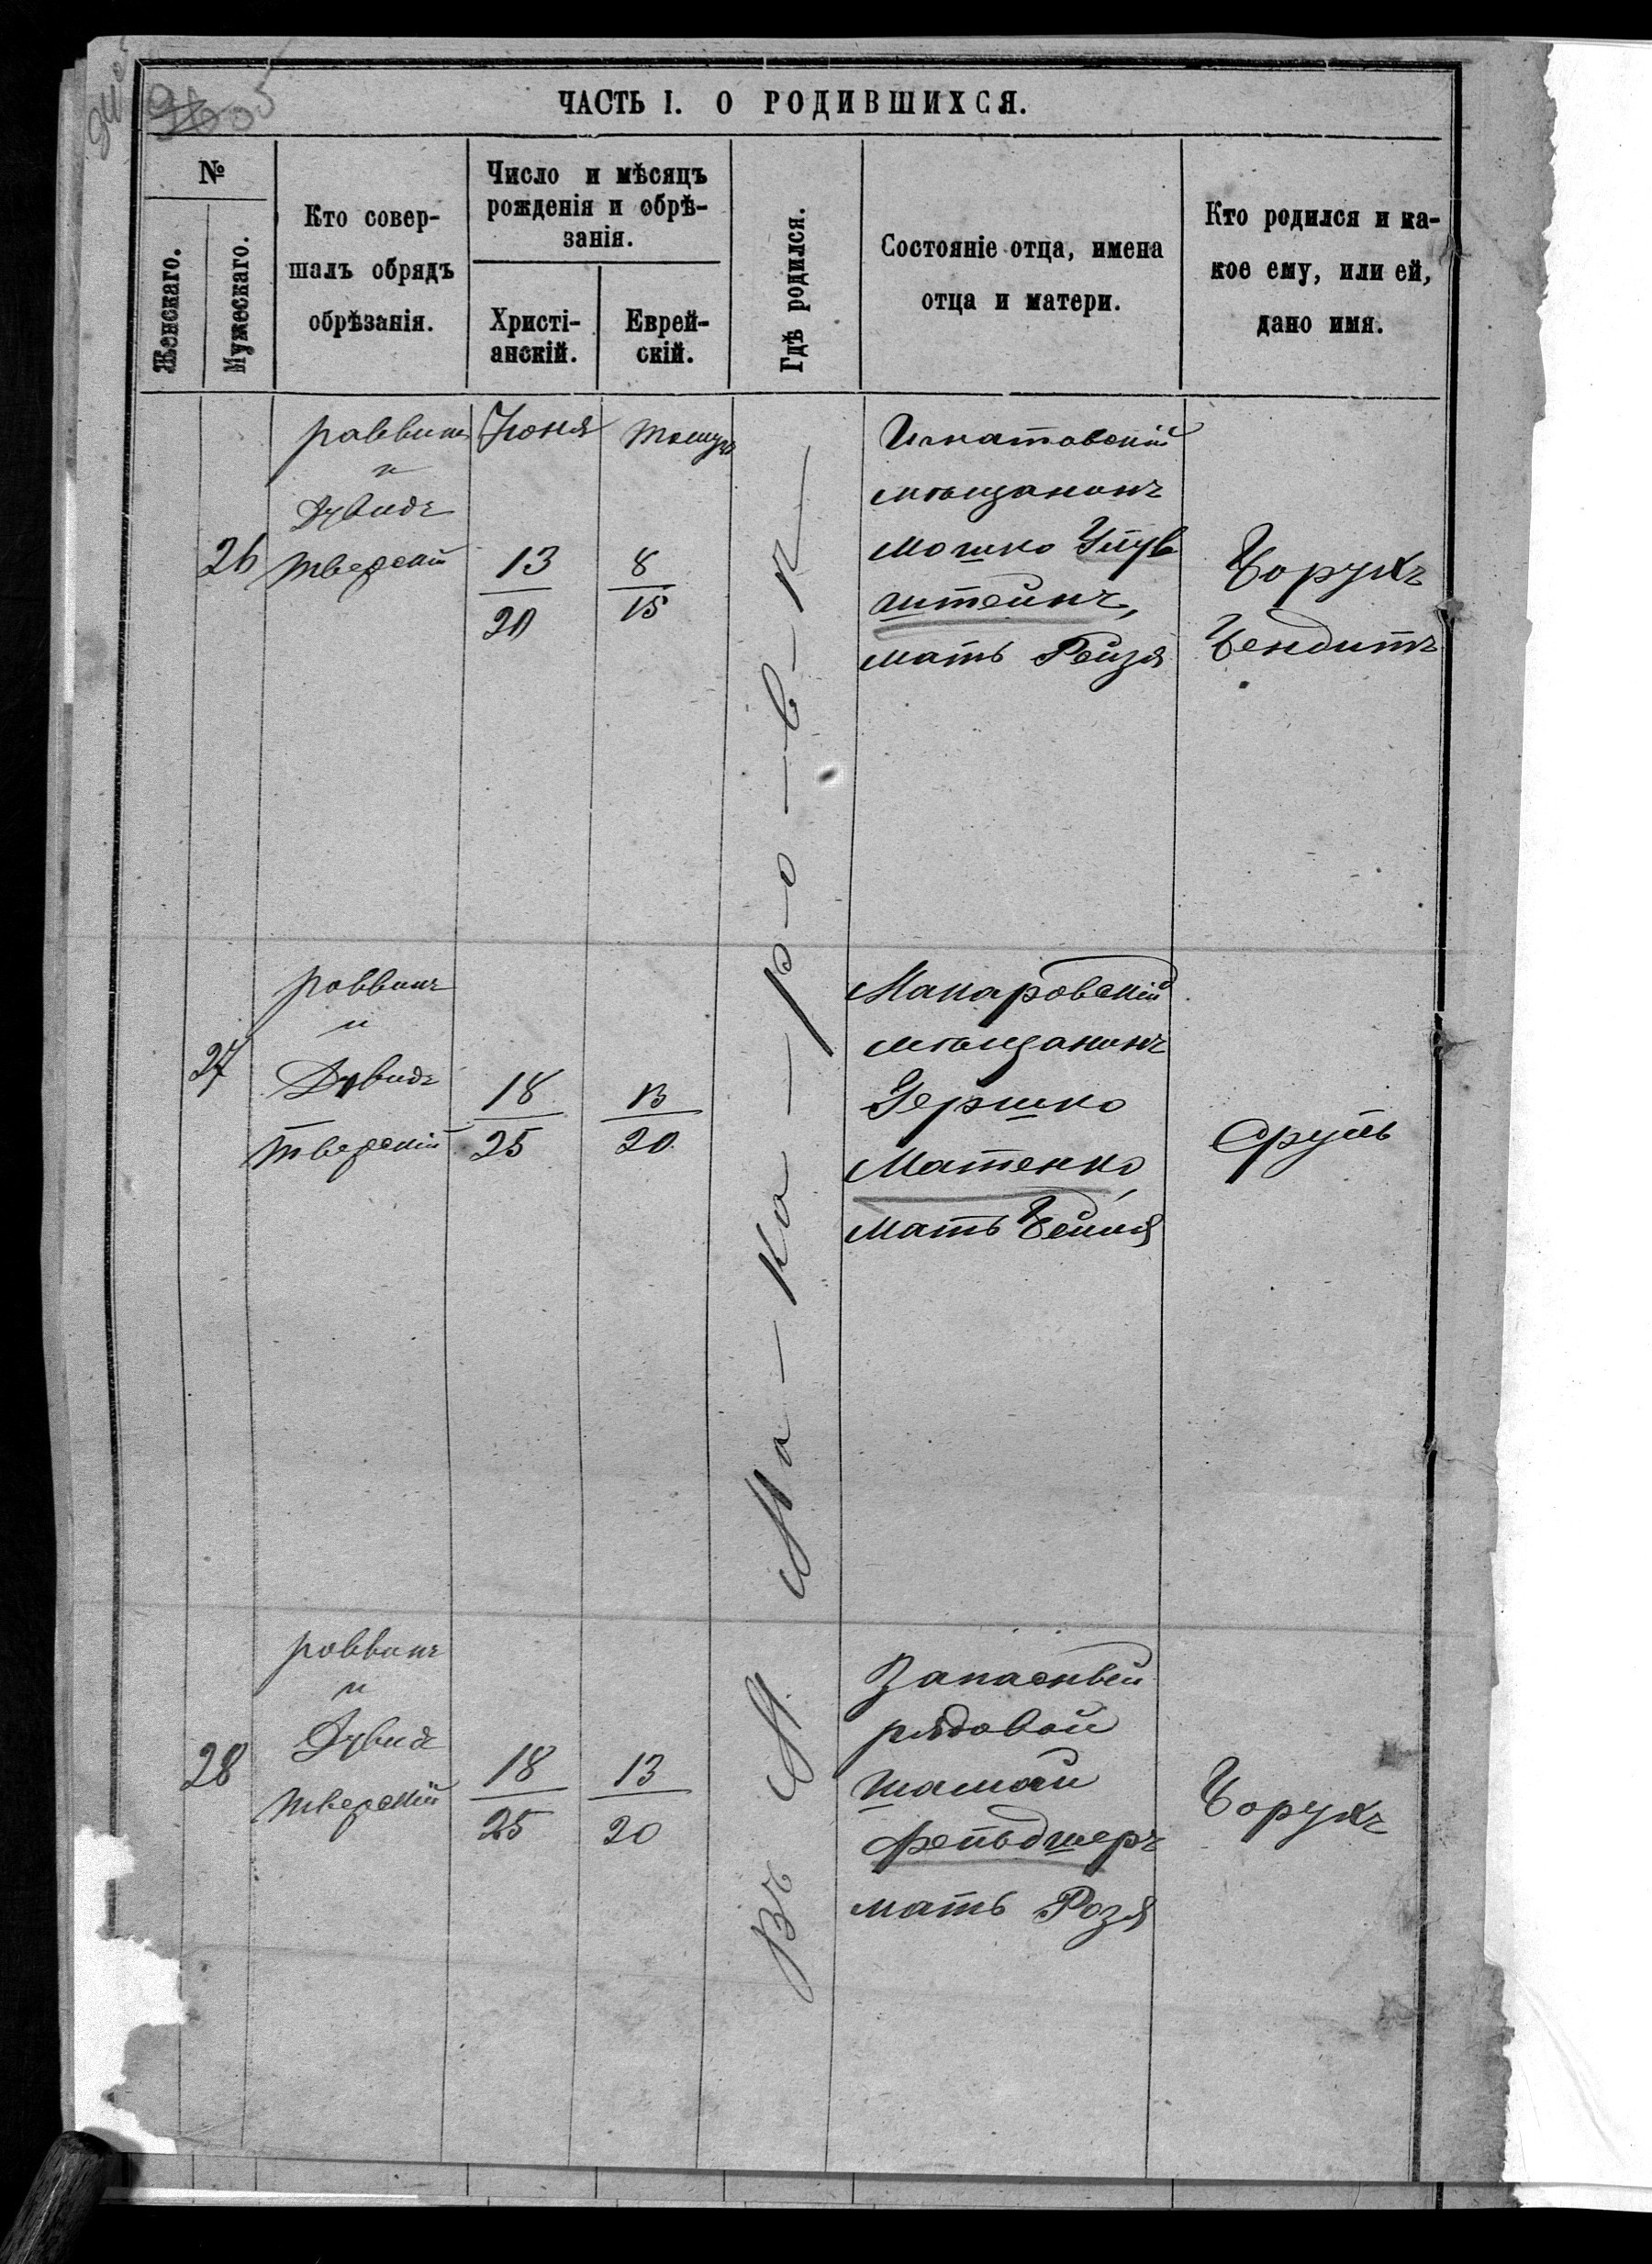 ЧАСТЬ I. О РОДИВШИХСЯ.
№
Женскаго.
Мужескаго.
Кто совер-
шалъ обрядъ
обрѣзанія.
Число и мѣсяцъ
рожденія и обрѣ-
занія.
Христі-
анскій.
Еврей-
скій.
Гдѣ родился.
Состояніе отца, имена
отца и матери.
Кто родился и ка-
кое ему, или ей,
дано имя.
26
раввинъ
и
Дувидъ
Тверскій
Іюня
13
20
8
15
Въ М. Ма-ка-ро-в-ѣ
мѣщанинъ
Мошко
штейнъ,
мать Рейзя
Борухъ
Бендитъ
27
раввинъ
и
Дувидъ
Тверскій
18
25
13
20
Макаровскій
мѣщанинъ
Гершко
Матенко,
мать Бейля
Сруль
28
раввинъ
и
Дувидъ
Тверскій
18
25
13
20
Запасный
рядовой
Шамай
Фельдшеръ
мать Розя
Борухъ